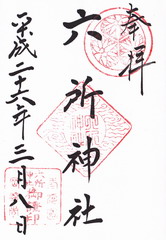 奉拝
六所神社
平成二十六年三月八日